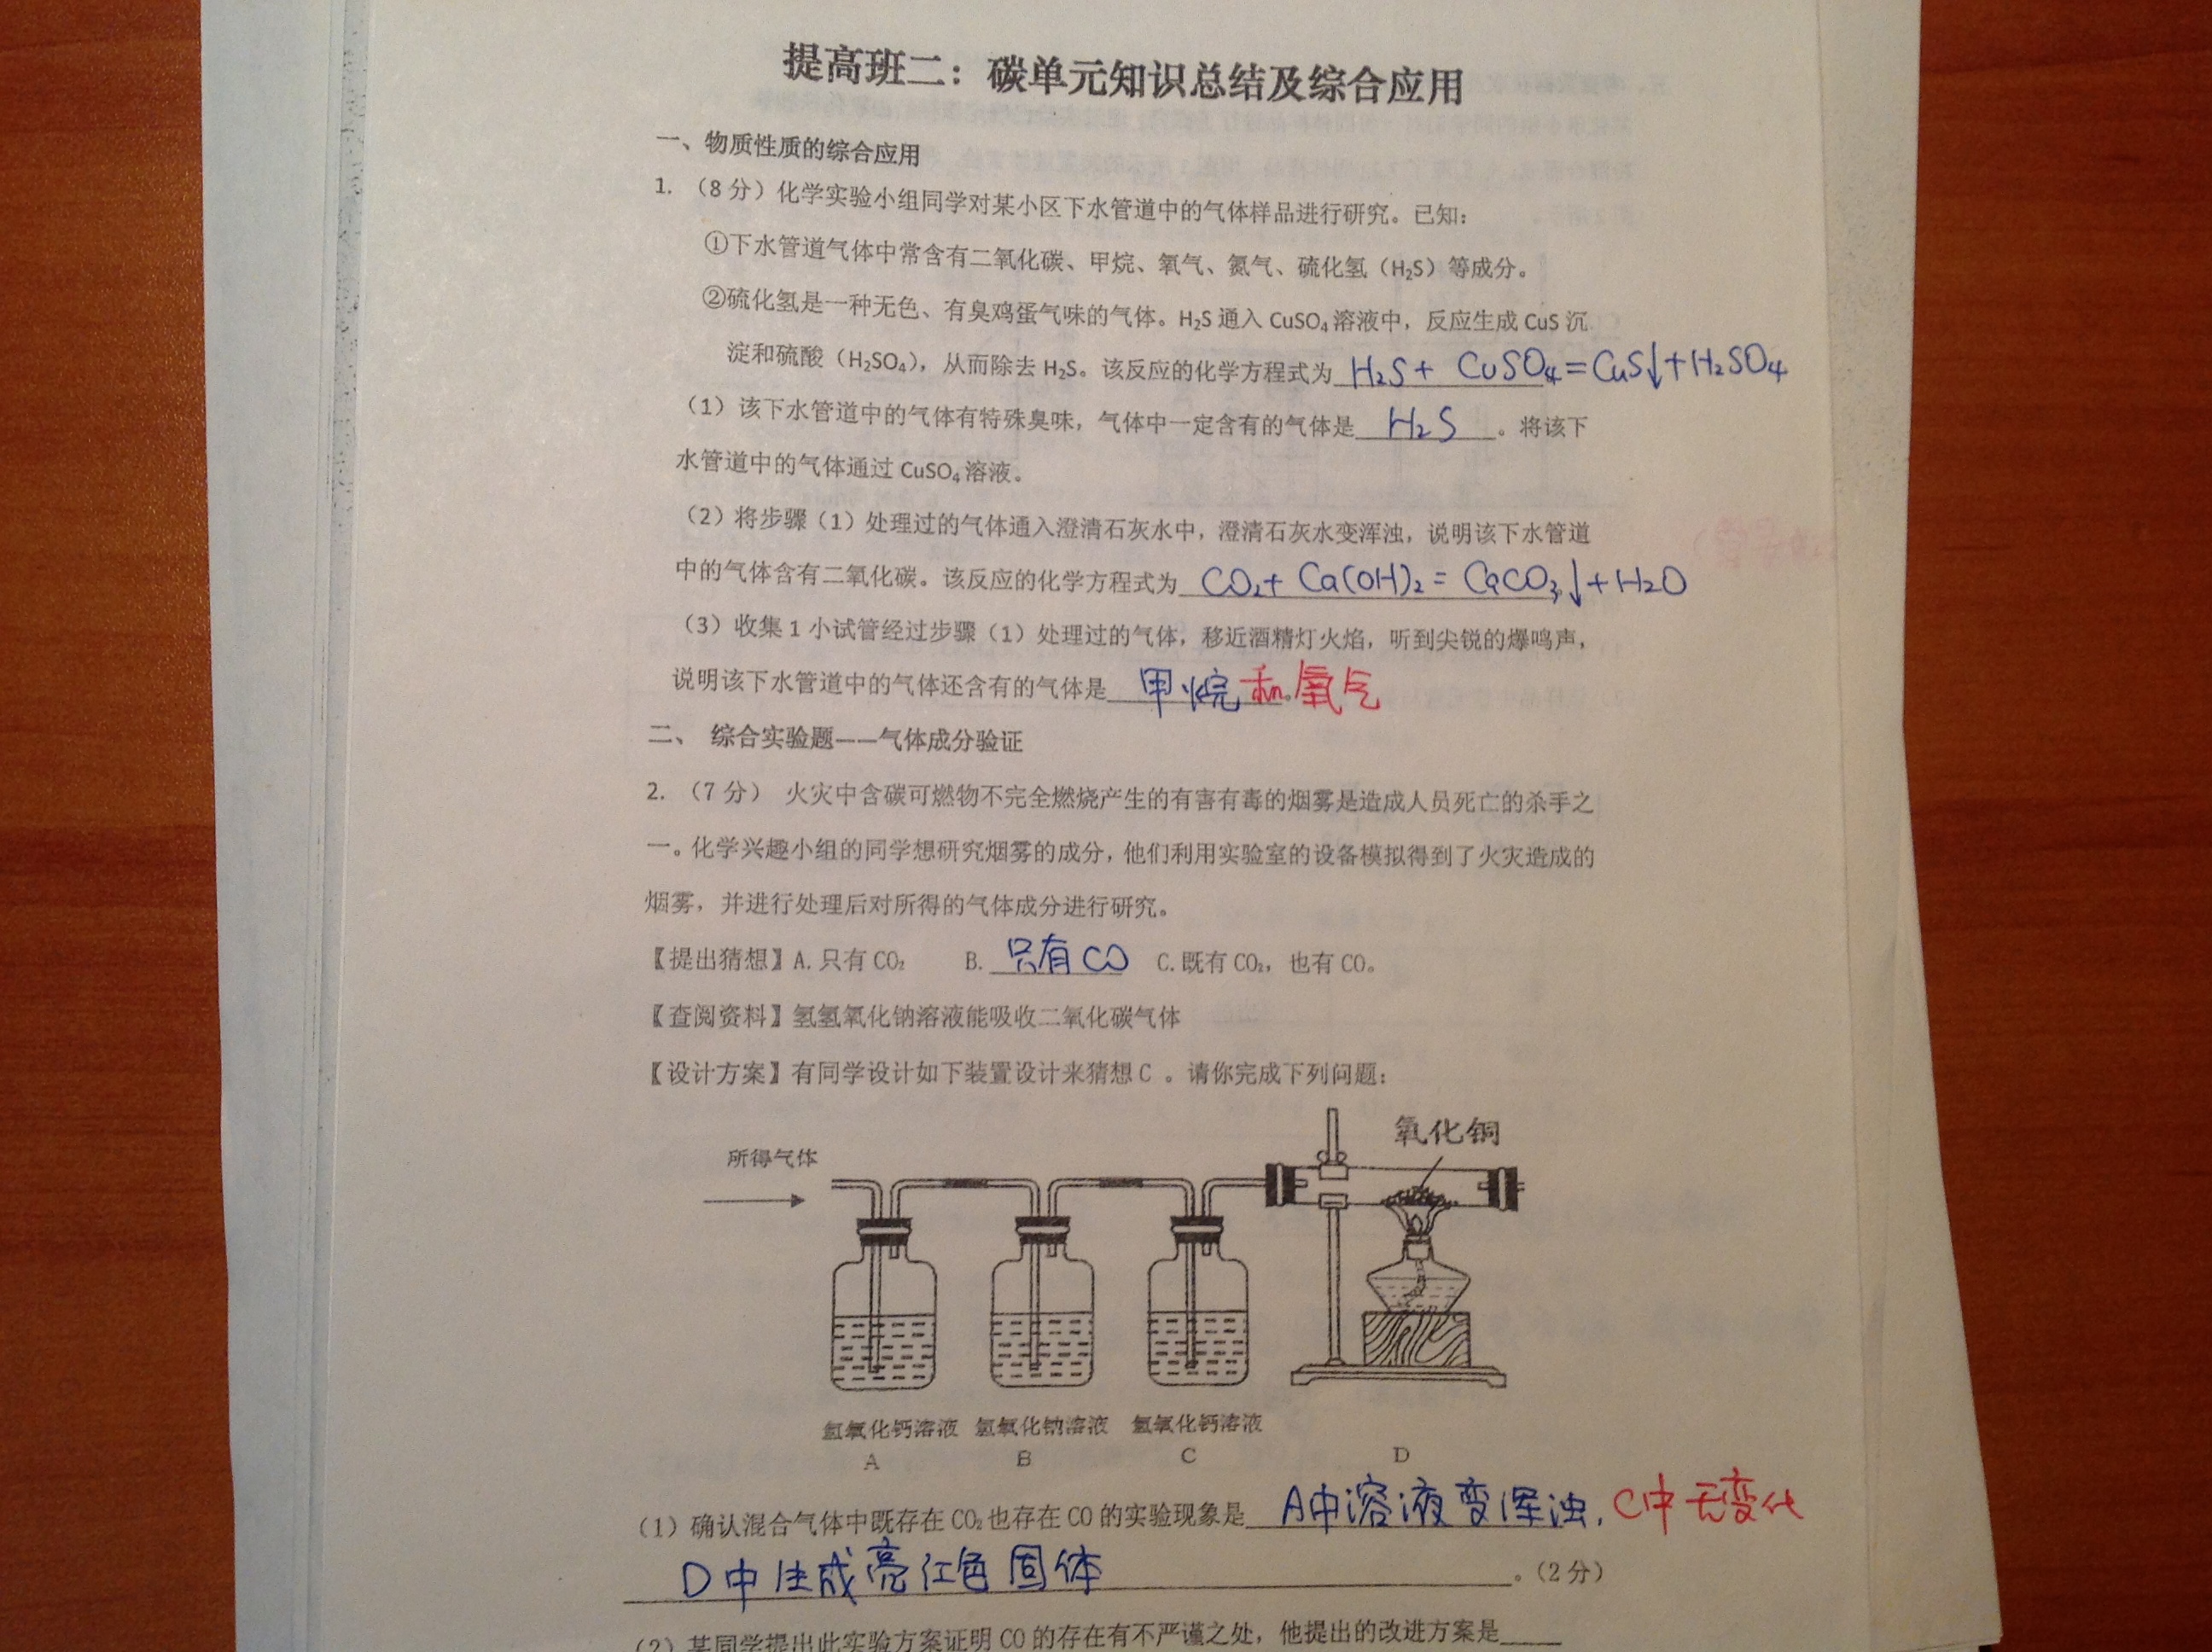 提高班二：碳单元知识总结及综合应用
一、物质性质的综合应用
1. （8分）化学实验小组同学对某小区下水管道中的气体样品进行研究。已知：
①下水管道气体中常含有二氧化碳、甲烷、氧气、氮气、硫化氢（H₂S）等成分。
②硫化氢是一种无色、有臭鸡蛋气味的气体。H₂S 通入 CuSO₄ 溶液中，反应生成 CuS 沉
淀和硫酸（H₂SO₄），从而除去 H₂S。该反应的化学方程式为 H₂S + CuSO₄ = CuS↓ + H₂SO₄
（1）该下水管道中的气体有特殊臭味，气体中一定含有的气体是 H₂S 。将该下
水管道中的气体通过 CuSO₄ 溶液。
（2）将步骤（1）处理过的气体通入澄清石灰水中，澄清石灰水变浑浊，说明该下水管道
中的气体含有二氧化碳。该反应的化学方程式为 CO₂ + Ca(OH)₂ = CaCO₃↓ + H₂O
（3）收集 1 小试管经过步骤（1）处理过的气体，移近酒精灯火焰，听到尖锐的爆鸣声，
说明该下水管道中的气体还含有的气体是 甲烷和氧气。
二、 综合实验题——气体成分验证
2. （7分） 火灾中含碳可燃物不完全燃烧产生的有害有毒的烟雾是造成人员死亡的杀手之
一。化学兴趣小组的同学想研究烟雾的成分，他们利用实验室的设备模拟得到了火灾造成的
烟雾，并进行处理后对所得的气体成分进行研究。
【提出猜想】A. 只有 CO₂ B. 只有 CO C. 既有 CO₂，也有 CO。
【查阅资料】氢氢氧化钠溶液能吸收二氧化碳气体
【设计方案】有同学设计如下装置设计来猜想 C 。请你完成下列问题：
氧化铜
所得气体
氢氧化钙溶液 氢氧化钠溶液 氢氧化钙溶液
A B C D
（1）确认混合气体中既存在 CO₂ 也存在 CO 的实验现象是 A中溶液变浑浊，C中无变化
D中生成亮红色固体 。（2分）
（2）某同学提出此实验方案证明 CO 的存在有不严谨之处，他提出的改进方案是